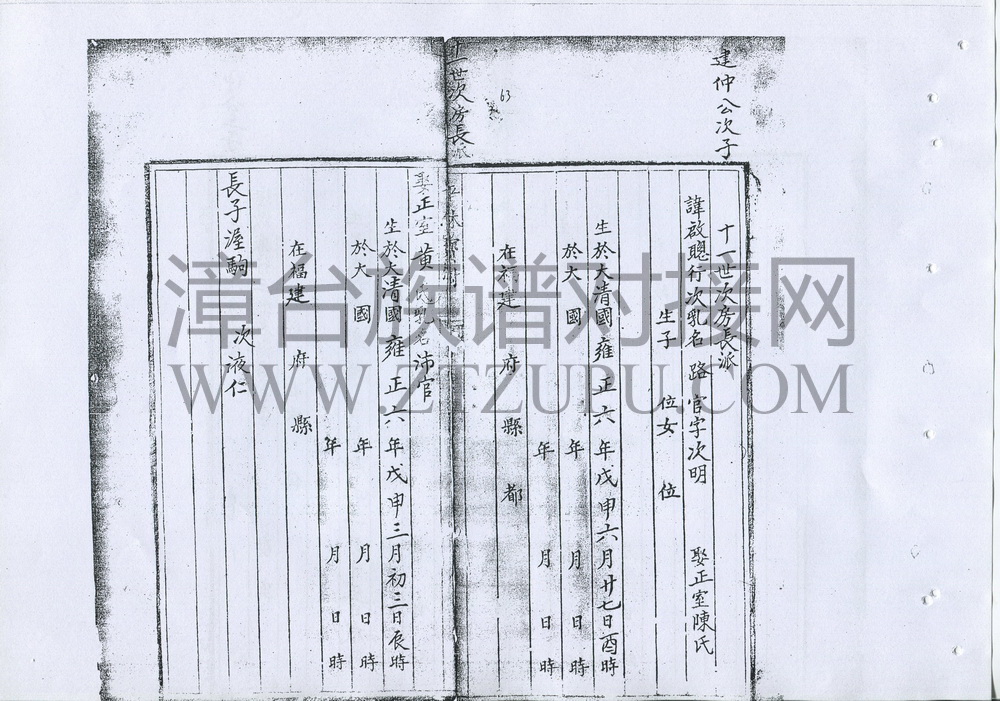 建仲公次子
十一世次房長派
諱啟聰行次乳名 路 官字次明 娶正室陳氏
生子 位女 位
生於大清國雍正六年戊申六月廿七日酉時
於大 國 年 月 日時
年 月 日時
在福建 府 縣 都
63
十一世次房長派
娶正室黃 氏乳名沛官
生於大清國雍正六年戊申三月初三日辰時
於大 國 年 月 日時
年 月 日時
在福建 府 縣
長子渥駒 次液仁
漳台族谱对接网
WWW.ZTZUPU.COM